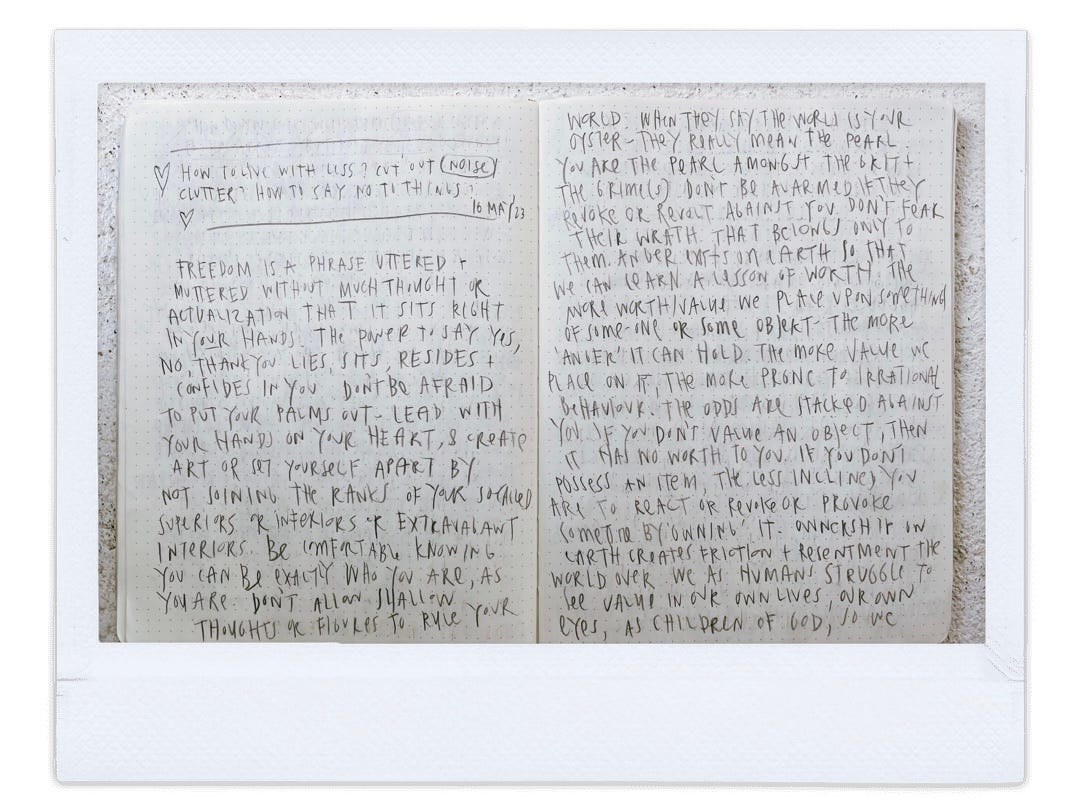 ♡ HOW TO LIVE WITH LESS? CUT OUT NOISE
CLUTTER? HOW TO SAY NO TO THINGS?
♡ 16 MAY/23
FREEDOM IS A PHRASE UTTERED +
MUTTERED WITHOUT MUCH THOUGHT OR
ACTUALIZATION THAT IT SITS RIGHT
IN YOUR HANDS. THE POWER TO SAY YES,
NO, THANK YOU LIES, SITS, RESIDES +
CONFIDES IN YOU DON'T BE AFRAID
TO PUT YOUR PALMS OUT - LEAD WITH
YOUR HANDS ON YOUR HEART, & CREATE
ART OR SET YOURSELF APART BY
NOT JOINING THE RANKS OF YOUR SO-CALLED
SUPERIORS OR INFERIORS OR EXTRAVAGANT
INTERIORS. BE COMFORTABLE KNOWING
YOU CAN BE EXACTLY WHO YOU ARE, AS
YOU ARE. DON'T ALLOW SHALLOW
THOUGHTS OR FIGURES TO RULE YOUR
WORLD. WHEN THEY SAY THE WORLD IS YOUR
OYSTER - THEY REALLY MEAN THE PEARL.
YOU ARE THE PEARL AMONGST THE GRIT +
THE GRIME(S) DON'T BE ALARMED IF THEY
REVOKE OR REVOLT AGAINST YOU. DON'T FEAR
THEIR WRATH. THAT BELONGS ONLY TO
THEM. ANGER EXISTS ON EARTH SO THAT
WE CAN LEARN A LESSON OF WORTH. THE
MORE WORTH/VALUE WE PLACE UPON SOMETHING
OF SOME-ONE OR SOME OBJEKT- THE MORE
'ANGER' IT CAN HOLD. THE MORE VALUE WE
PLACE ON IT, THE MORE PRONE TO IRRATIONAL
BEHAVIOUR. THE ODDS ARE STACKED AGAINST
YOU IF YOU DON'T VALUE AN OBJECT, THEN
IT HAS NO WORTH TO YOU. IF YOU DON'T
POSSESS AN ITEM, THE LESS INCLINED YOU
ARE TO REACT OR REVOKE OR PROVOKE
SOMEONE BY 'OWNING' IT. OWNERSHIP ON
EARTH CREATES FRICTION + RESENTMENT THE
WORLD OVER. WE AS HUMANS STRUGGLE TO
SEE VALUE IN OUR OWN LIVES, OUR OWN
EYES, AS CHILDREN OF GOD, SO WE